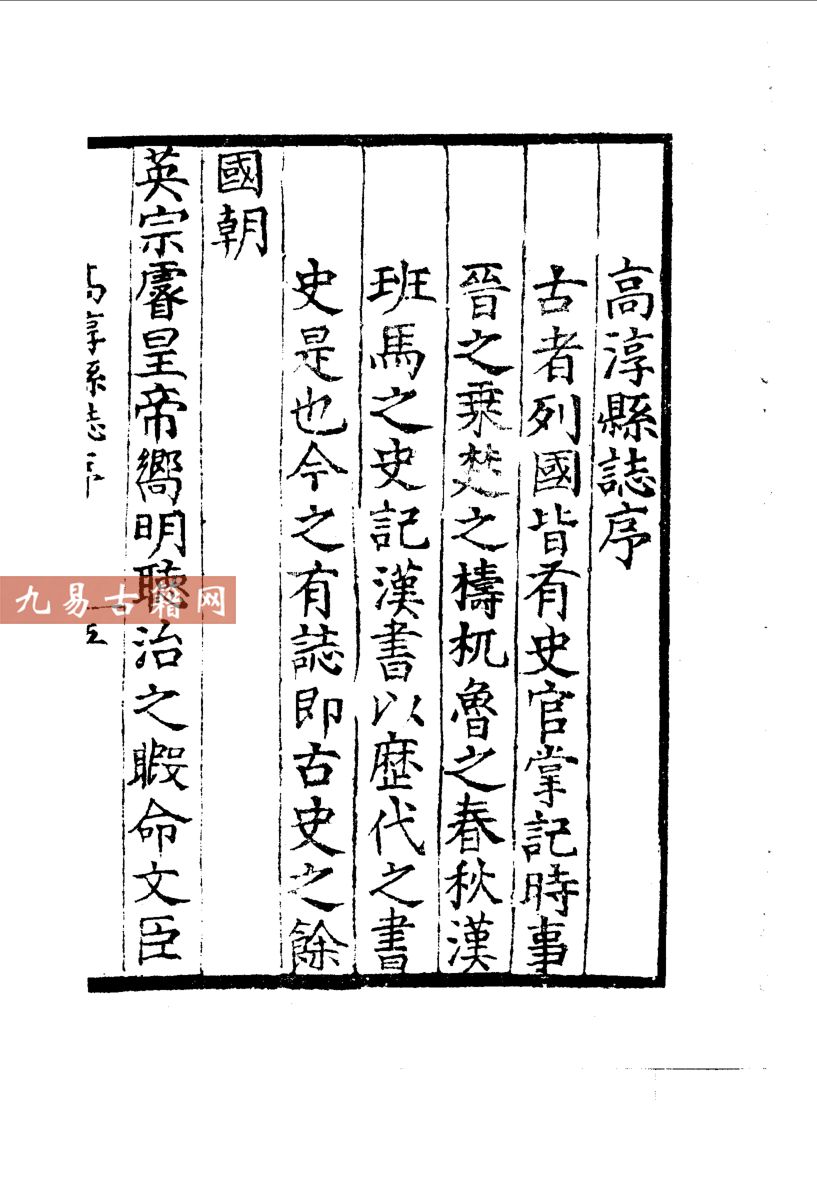 高淳縣誌序
古者列國皆有史官掌記時事
晉之乘楚之檮杌魯之春秋漢
班馬之史記漢書以歷代之書
史是也今之有誌即古史之餘
國朝
英宗睿皇帝嚮明聽治之暇命文臣
高淳縣誌序
九易古籍网